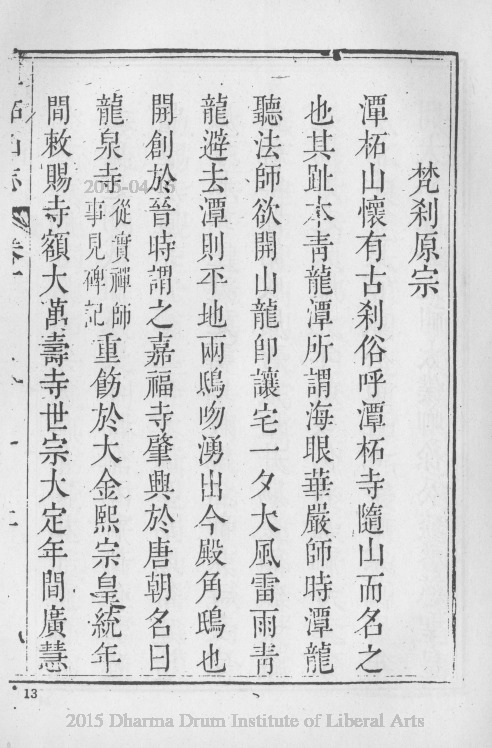 梵剎原宗
潭柘山懷有古剎俗呼潭柘寺隨山而名之
也其趾本青龍潭所謂海眼華嚴師時潭龍
聽法師欲開山龍卽讓宅一夕大風雷雨青
龍避去潭則平地兩鴟吻湧出今殿角鴟也
開創於晉時謂之嘉福寺肇興於唐朝名曰
龍泉寺從實禪師事見碑記重飭於大金熙宗皇統年
間敕賜寺額大萬壽寺世宗大定年間廣慧
柘山志 卷一
13
2015 Dharma Drum Institute of Liberal Arts